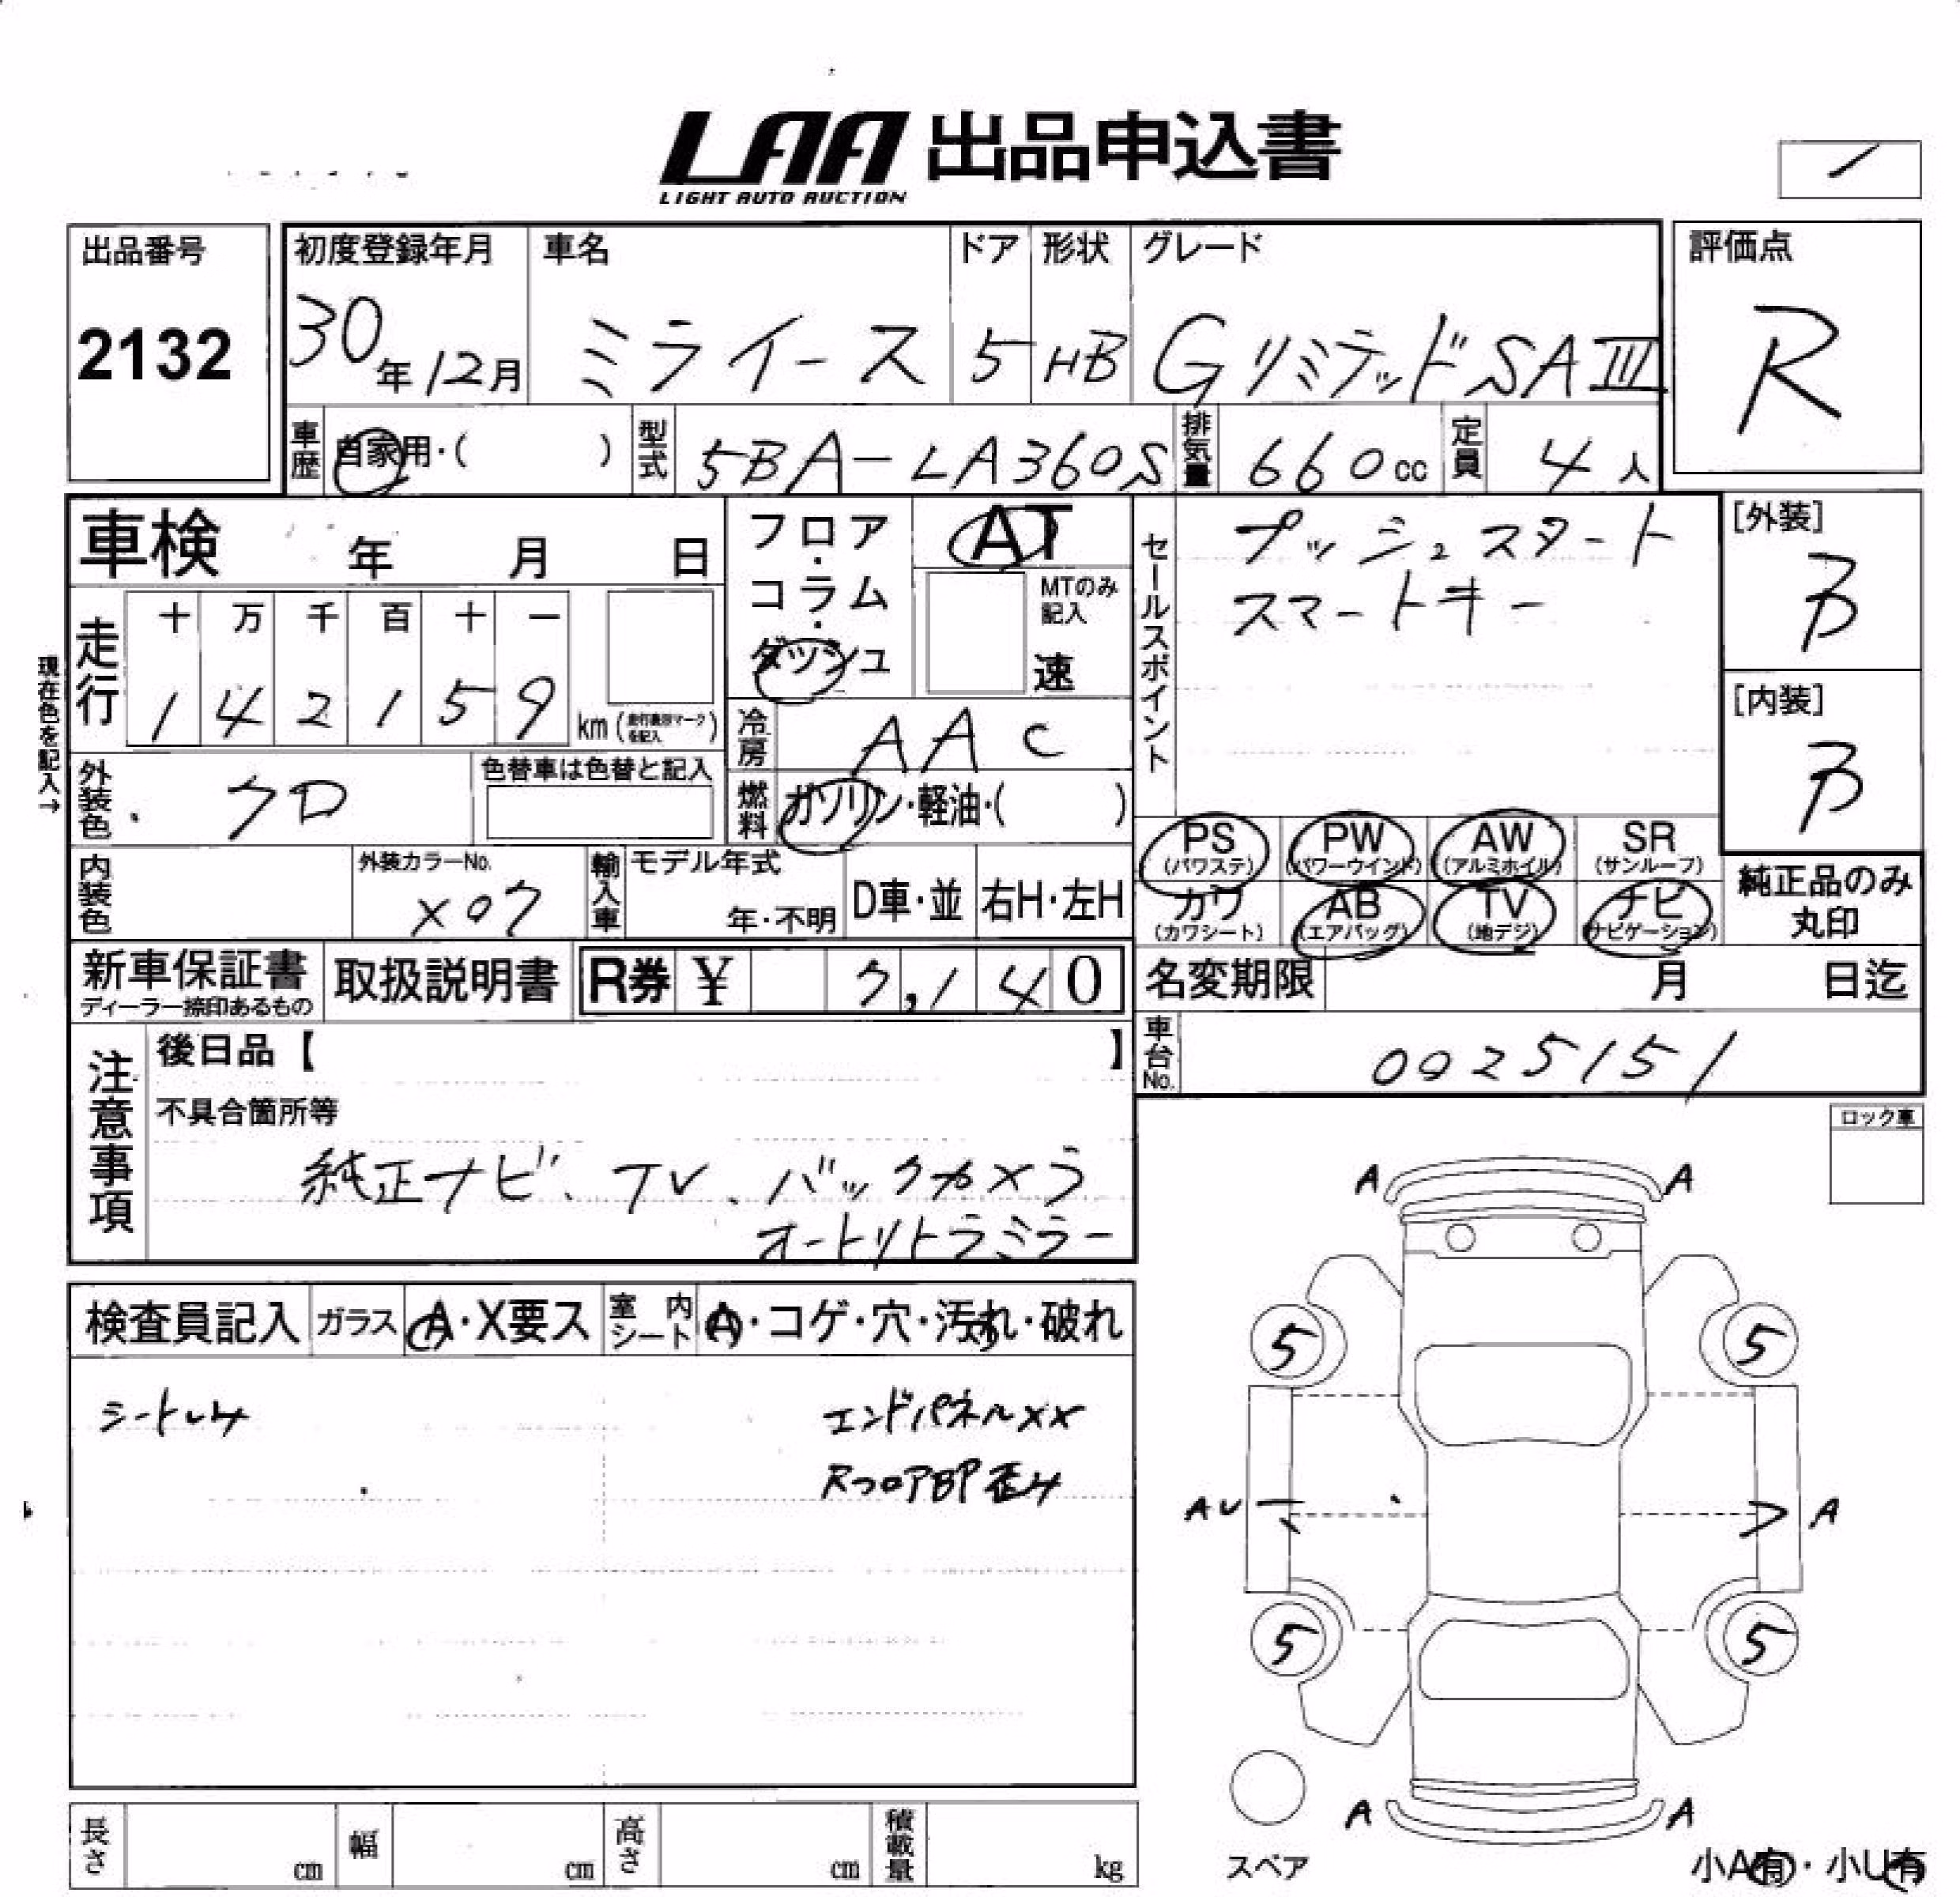 LAA 出品申込書
LIGHT AUTO AUCTION
出品番号
2132
初度登録年月
30年12月
車名
ミライース
ドア
5
形状
HB
グレード
GリミテッドSAⅢ
評価点
R
車歴
自家用・( )
型式
5BA-LA360S
排気量
660cc
定員
4人
車検 年 月 日
走行
十 万 千 百 十 一
1 4 2 1 5 9 km
現在色を記入→
フロア・コラム・ダッシュ
AT
MTのみ記入
速
冷房
AAC
燃料
ガソリン・軽油・( )
セールスポイント
プッシュスタート
スマートキー
[外装]
B
[内装]
B
外装色
クロ
色替車は色替と記入
内装色
外装カラーNo.
X07
輸入車
モデル年式
年・不明
D車・並
右H・左H
PS
(パワステ)
PW
(パワーウインド)
AW
(アルミホイル)
SR
(サンルーフ)
カワ
(カワシート)
AB
(エアバッグ)
TV
(地デジ)
ナビ
(ナビゲーション)
純正品のみ
丸印
新車保証書
ディーラー捺印あるもの
取扱説明書
R券 ¥ 7,140
名変期限 月 日迄
車台No.
0025151
注意事項
後日品【 】
不具合箇所等
純正ナビ、TV、バックカメラ
オートリトラミラー
ロック車
検査員記入
ガラス
A・X要ス
室内シート
A・コゲ・穴・汚れ・破れ
シートシミ
エンドパネルXX
RフロアBP歪み
A A
5 5
AU A
5 5
A A
スペア
小A有・小U有
長さ cm
幅 cm
高さ cm
積載量 kg